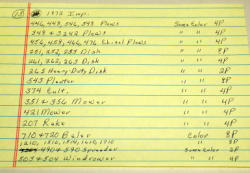 1972 Imp.
446, 448, 546, 548 Plows Same Color 4P
348 + 3242 Plows " " 4P
456, 458, 466, 476 Chisel Plows " " 4P
251, 252, 253 Disk " " 8P
261, 262, 263 Disk " " 4P
265 Heavy Duty Disk " " 2P
543 Planter " " 8P
374 Cult. " " 4P
351 + 356 Mower " " 4P
421 Mower " " 4P
207 Rake " " 4P
710 + 720 Baler Color 8P
1210, 1810, 1814, 1610, 1710
490 + 590 Spreader Same Color 2P
503 + 504 Windrower " " 4P